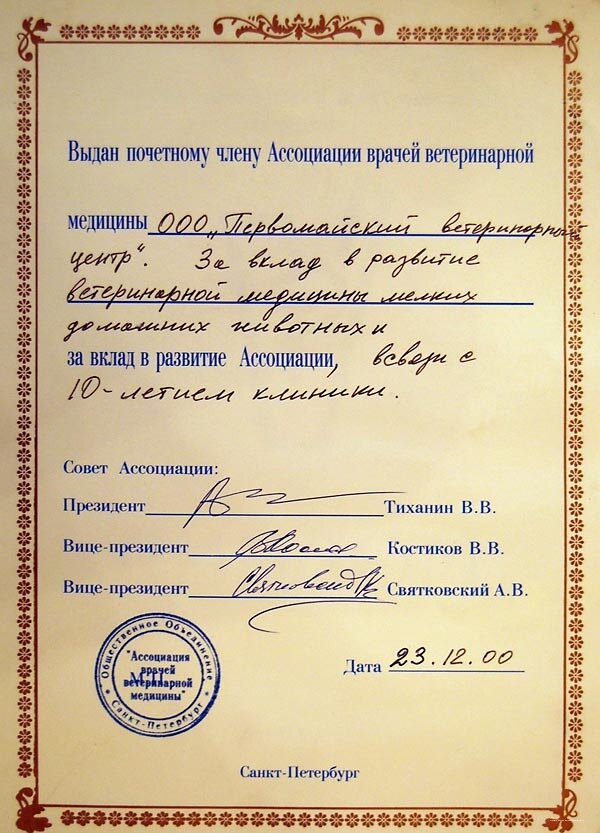 Выдан почетному члену Ассоциации врачей ветеринарной
медицины ООО „Первомайский ветеринарный
центр". За вклад в развитие
ветеринарной медицины мелких
домашних животных и
за вклад в развитие Ассоциации, всвязи с
10-летием клиники.
Совет Ассоциации:
Президент Тиханин В.В.
Вице-президент Костиков В.В.
Вице-президент Святковский А.В.
Общественное Объединение
"Ассоциация
врачей
ветеринарной
медицины"
Санкт-Петербург
М.П.
Дата 23.12.00
Санкт-Петербург